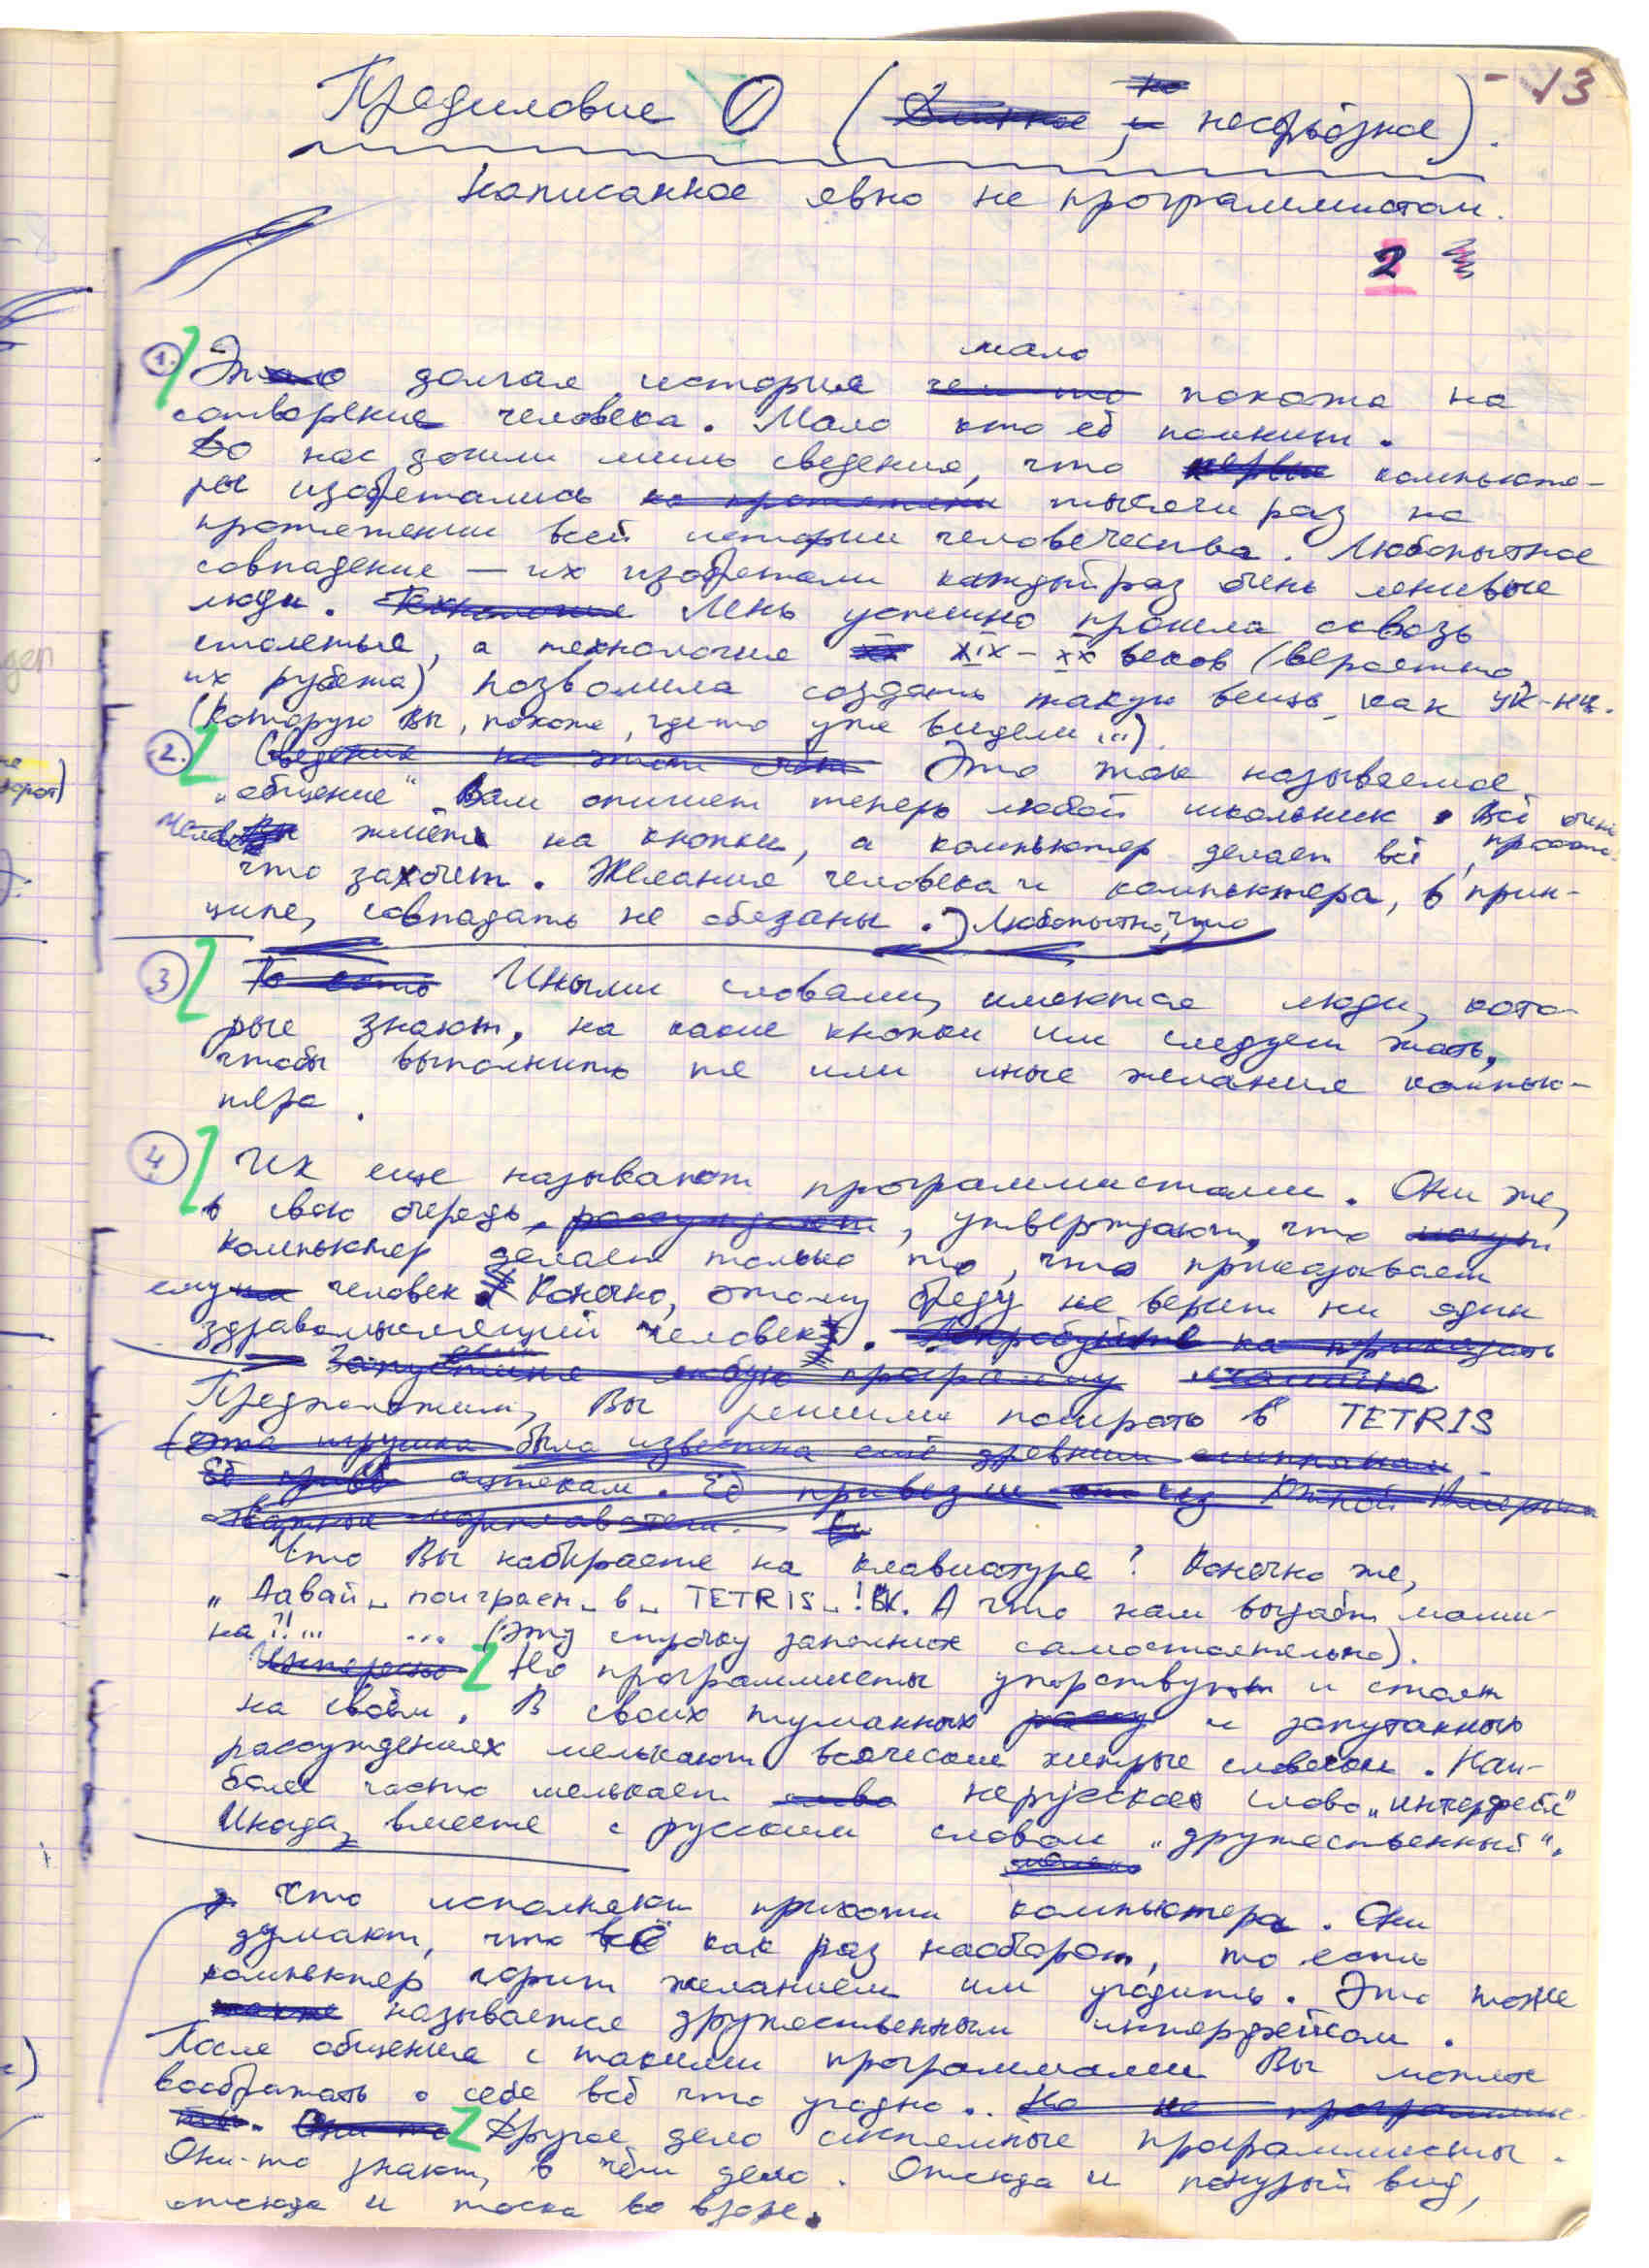 Предисловие ① (несерьёзное).
- 13
написанное явно не программистом.
2
мало
1. Эта долгая история похожа на
сотворение человека. Мало кто её помнит.
До нас дошли лишь сведения, что компьюте-
ры изобретались тысячи раз на
протяжении всей истории человечества. Любопытное
совпадение — их изобретали каждый раз очень ленивые
люди. Лень успешно прошла сквозь
столетья, а технология XIX - XX веков (вероятно
их рубежа) позволила создать такую вещь, как УК-НЦ.
(которую Вы, похоже, где-то уже видели...).
2. Это так называемое
„общение“ Вам опишет теперь любой школьник. Всё очень
просто.
Человек жмёт на кнопки, а компьютер делает всё,
что захочет. Желания человека и компьютера, в прин-
ципе, совпадать не обязаны. Любопытно, что
3 Иными словами, имеются люди, кото-
рые знают, на какие кнопки им следует жать,
чтобы выполнить те или иные желания компью-
тера.
4 Их еще называют программистами. Они же,
в свою очередь, утверждают, что
компьютер делает только то, что приказывает
ему человек. Конечно, этому бреду не верит ни один
здравомыслящий человек.
Предположим, Вы решили поиграть в TETRIS
(эта игрушка была известна ещё древним
ацтекам. Её привезли из Южной Америки
Что Вы набираете на клавиатуре? Конечно же,
„Давай␣поиграем␣в␣TETRIS␣!ВК. А что нам выдаёт маши-
на?!... ... (эту строчку заполних самостоятельно).
Интересно Но программисты упорствуют и стоят
на своём. В своих туманных и запутанных
рассуждениях мелькают всяческие хитрые словечки. Наи-
более часто мелькает нерусское слово „интерфейс“
Иногда, вместе с русским словом „дружественный“.
что исполняют прихоти компьютера. Они
думают, что всё как раз наоборот, то есть
компьютер горит желанием им угодить. Это тоже
называется дружественным интерфейсом.
После общения с такими программами Вы можете
воображать о себе всё что угодно..
Другое дело системные программисты.
Они-то знают, в чём дело. Отсюда и понурый вид,
отсюда и тоска во взоре.